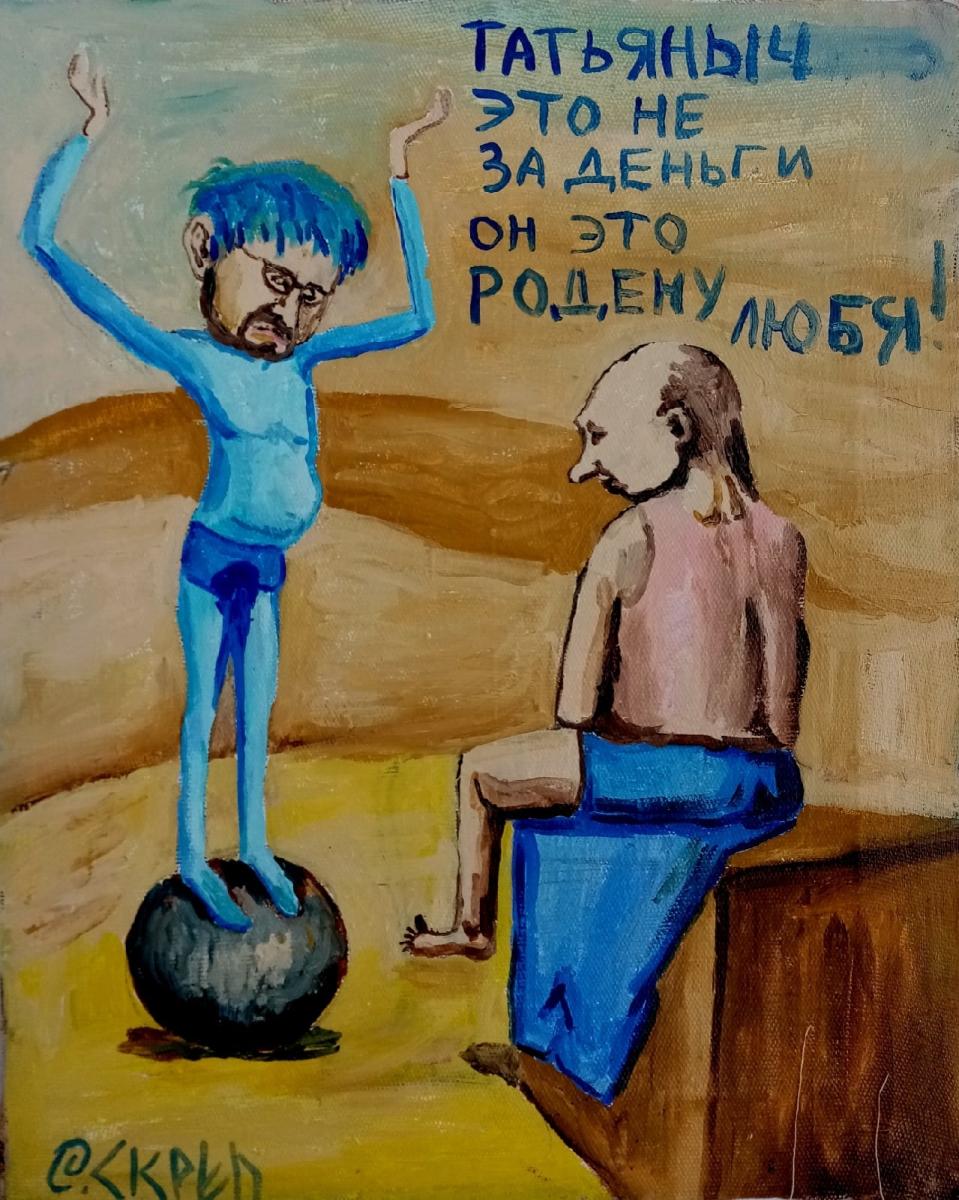 ТАТЬЯНЫЧ
ЭТО НЕ
ЗА ДЕНЬГИ
ОН ЭТО
РОДЕНУ
ЛЮБЯ!
@.СКРЕП